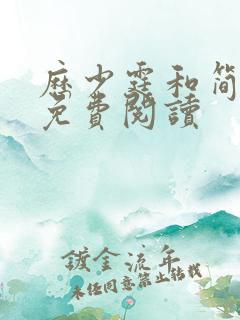 历少霆和简
免费阅读
镀金流年
未经同意禁止转载